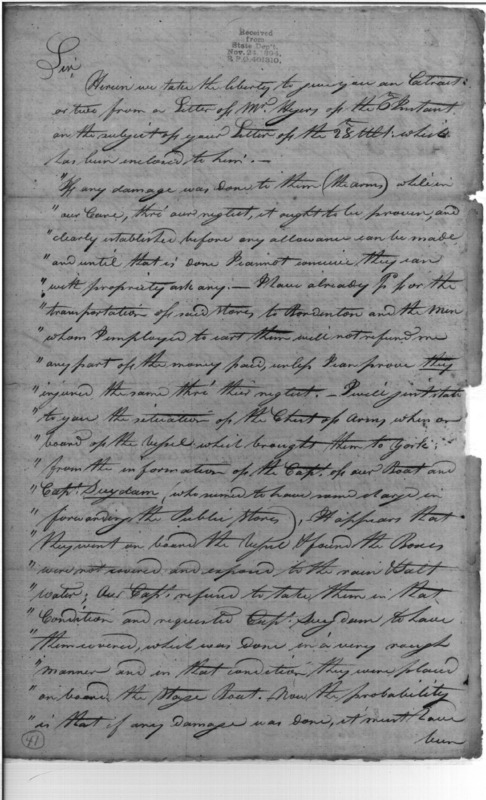 Received
from
State Dep't.
Nov. 21, 1894.
R.P.O. 401310.
Sir,
Herein we take the liberty to give you an Extract
or two from a Letter of Mr. Hyers of the 6th Instant
on the subject of your Letter of the 28th Ult. which
has been inclosed to him. —
"If any damage was done to them (the arms) while in
"our Care, thro' our neglect, it ought to be proven, and
"clearly established before any allowance can be made
"and until that is done I cannot conceive they can
"with propriety ask any. — I have already pd. for the
"transportation of said stores to Bordenton and the Men
"whom I employed to cart them will not refund me
"any part of the money paid, unless I can prove they
"injured the same thro' their neglect. — I will just state
"to you the situation of the Chest of Arms when on
"board of the Vessel which brought them to York;
"from the information of the Capt. of our Boat and
"Capt. Suydam, (who seemed to have some charge in
"forwarding the Public Stores), It appears that
"they went on board the Vessel & found the Boxes
"were not covered and exposed to the rain & Salt
"water; Our Capt. refused to take them in that
"Condition and requested Capt. Suydam to have
"them covered, which was done in a very rough
"manner and in that condition they were placed
"on board the Stage Boat. Now the probability
"is that if any damage was done, it must have
been
41